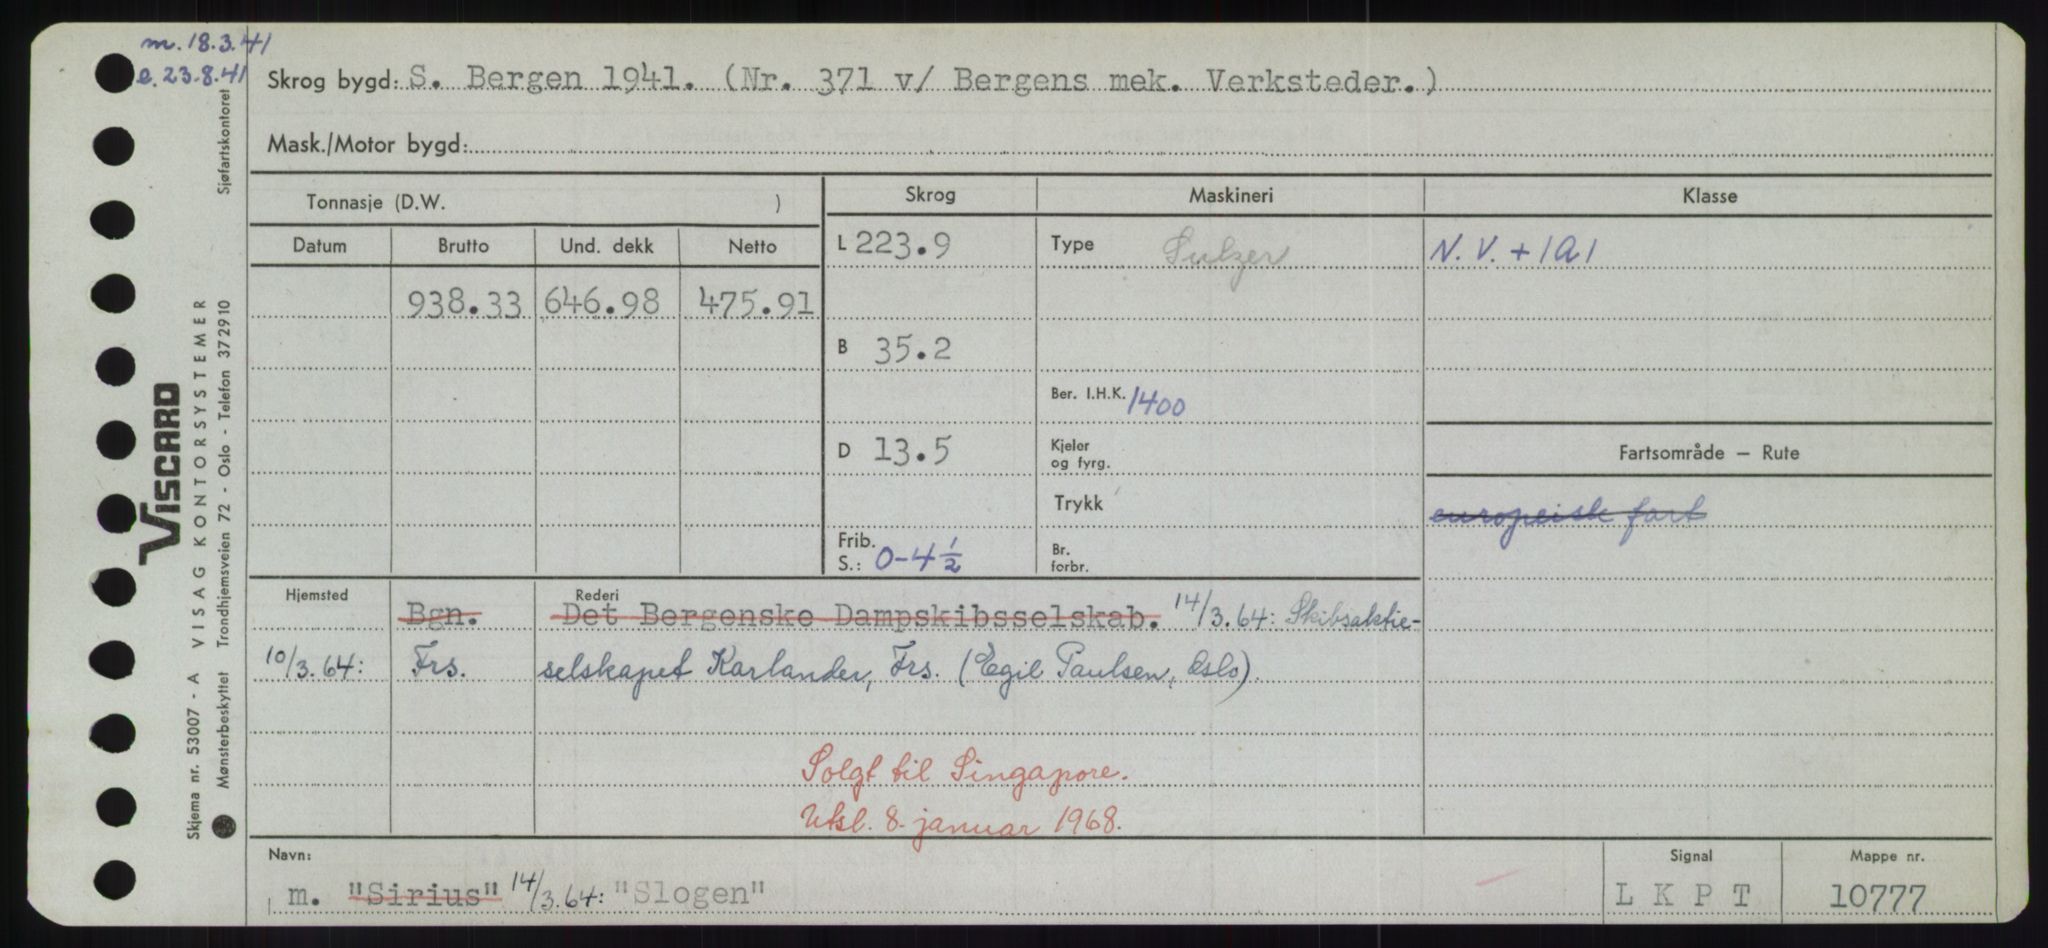 m. 18.3.41
e. 23.8.41
Skrog bygd: S. Bergen 1941. (Nr. 371 v/ Bergens mek. Verksteder.)
Mask./Motor bygd:
Tonnasje (D.W. )
Datum Brutto Und. dekk Netto
938.33 646.98 475.91
Skrog
L 223.9
B 35.2
D 13.5
Frib.
S.: 0-4 1/2
Maskineri
Type Sulzer
Ber. I.H.K. 1400
Kjeler
og fyrg.
Trykk
Br.
forbr.
Klasse
N. V. + 1A1
Fartsområde – Rute
europeisk fart
Hjemsted Rederi
Bgn. Det Bergenske Dampskibsselskab. 14/3.64: Skibsaktie-
10/3.64: Frs. selskapet Karlander, Frs. (Egil Paulsen, Oslo).
Solgt til Singapore.
Utsl. 8. januar 1968.
Navn:
m. "Sirius" 14/3.64: "Slogen"
Signal
L K P T
Mappe nr.
10777
VISCARD
Skjema nr. 53007 - A VISAG KONTORSYSTEMER
Mønsterbeskyttet Trondhjemsveien 72 - Oslo - Telefon 372910 Sjøfartskontoret